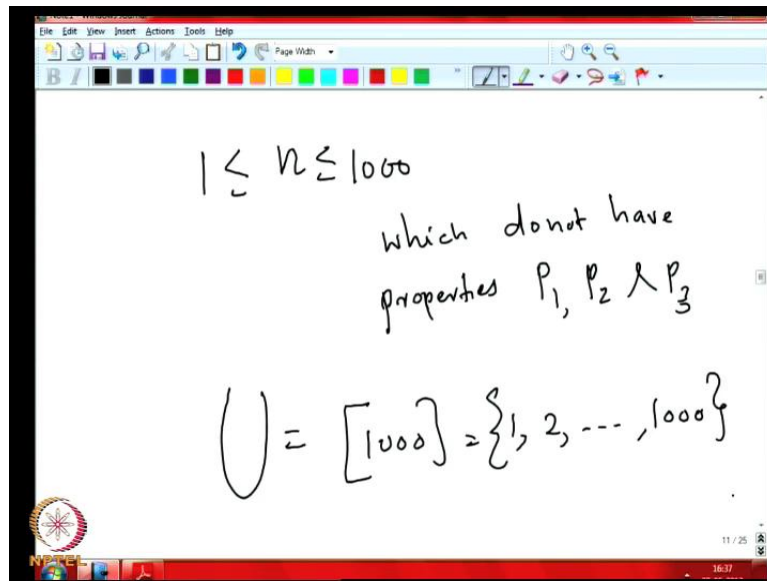 File Edit View Insert Actions Tools Help
Page Width
1 ≤ n ≤ 1000
which donot have
properties P₁, P₂ & P₃
U = [1000] = {1, 2, ---, 1000}
11 / 25
NPTEL
16:37